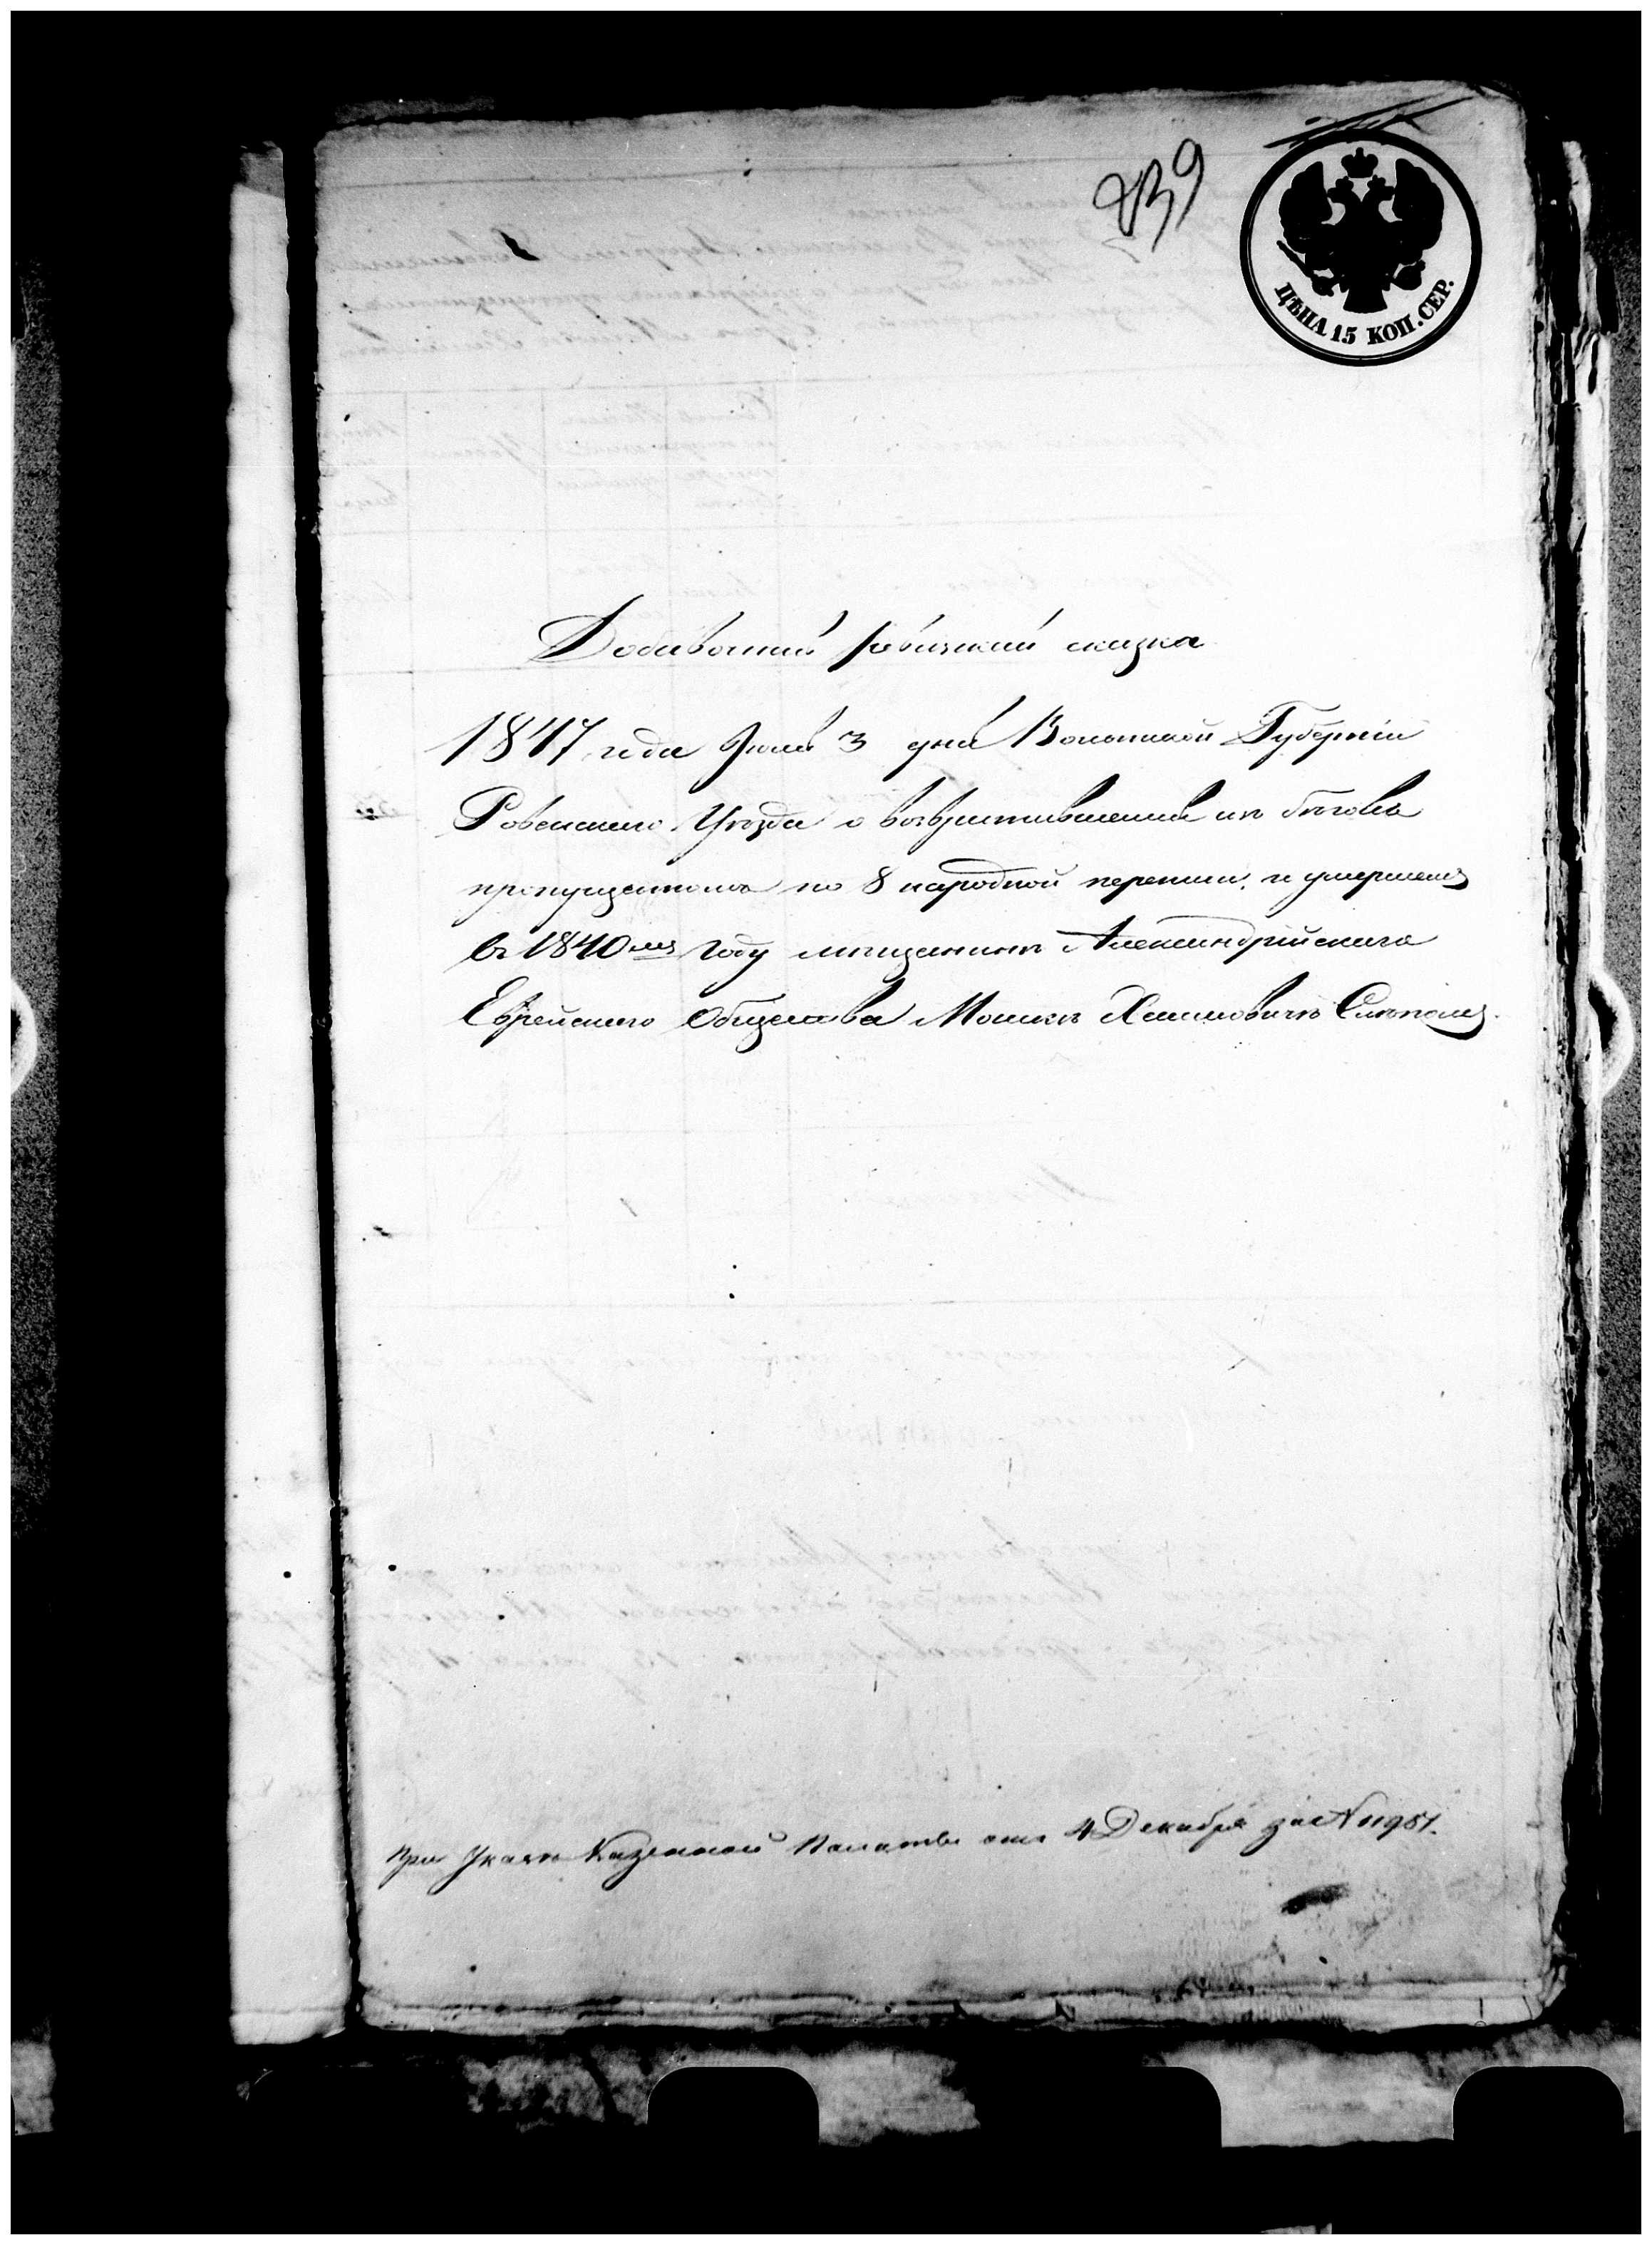 839
ЦѢНА 15 КОП. СЕР.
Добавочный ревизкий сказка
1847 года Июля 3 дня Волынской Губерніи
Ровенскаго Уѣзда о возвратившемся изъ бѣговъ
пропущенномъ по 8 народной переписи, и умершемъ
въ 1840мъ году мещанинѣ Александрійскаго
Еврейскаго Общества Мошкѣ Хаимовичѣ
При Указѣ Казенной Палаты отъ 4 Декабря за N 11951.